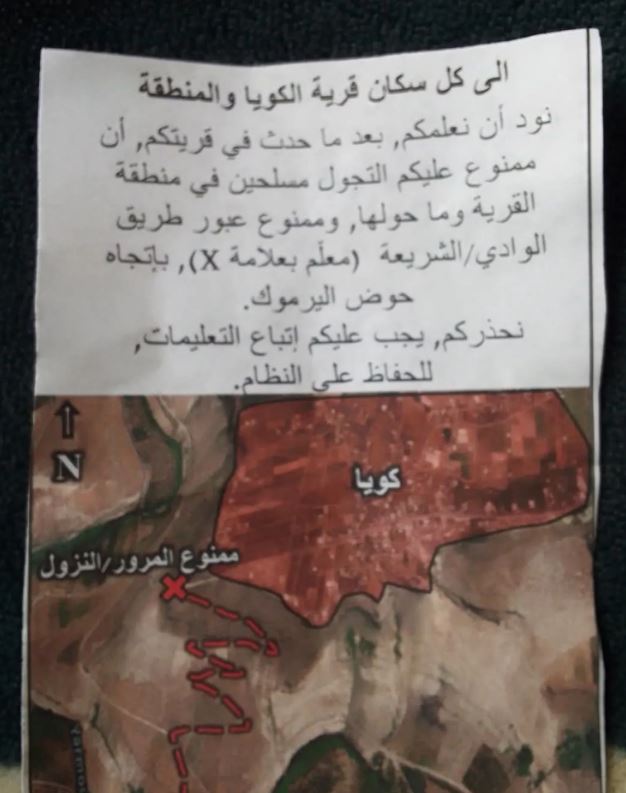 الى كل سكان قرية الكويا والمنطقة
نود أن نعلمكم, بعد ما حدث في قريتكم, أن
ممنوع عليكم التجول مسلحين في منطقة
القرية وما حولها, وممنوع عبور طريق
الوادي/الشريعة (معلّم بعلامة X), بإتجاه
حوض اليرموك.
نحذركم, يجب عليكم إتباع التعليمات,
للحفاظ على النظام.
N
كويا
ممنوع المرور/النزول